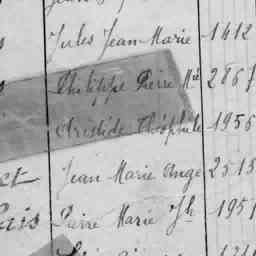 Jules Jean Marie 1412
Philippe Pierre Mie 286
Aristide Théophile 1956
Jean Marie Ange 2515
Pierre Marie Jh 1951